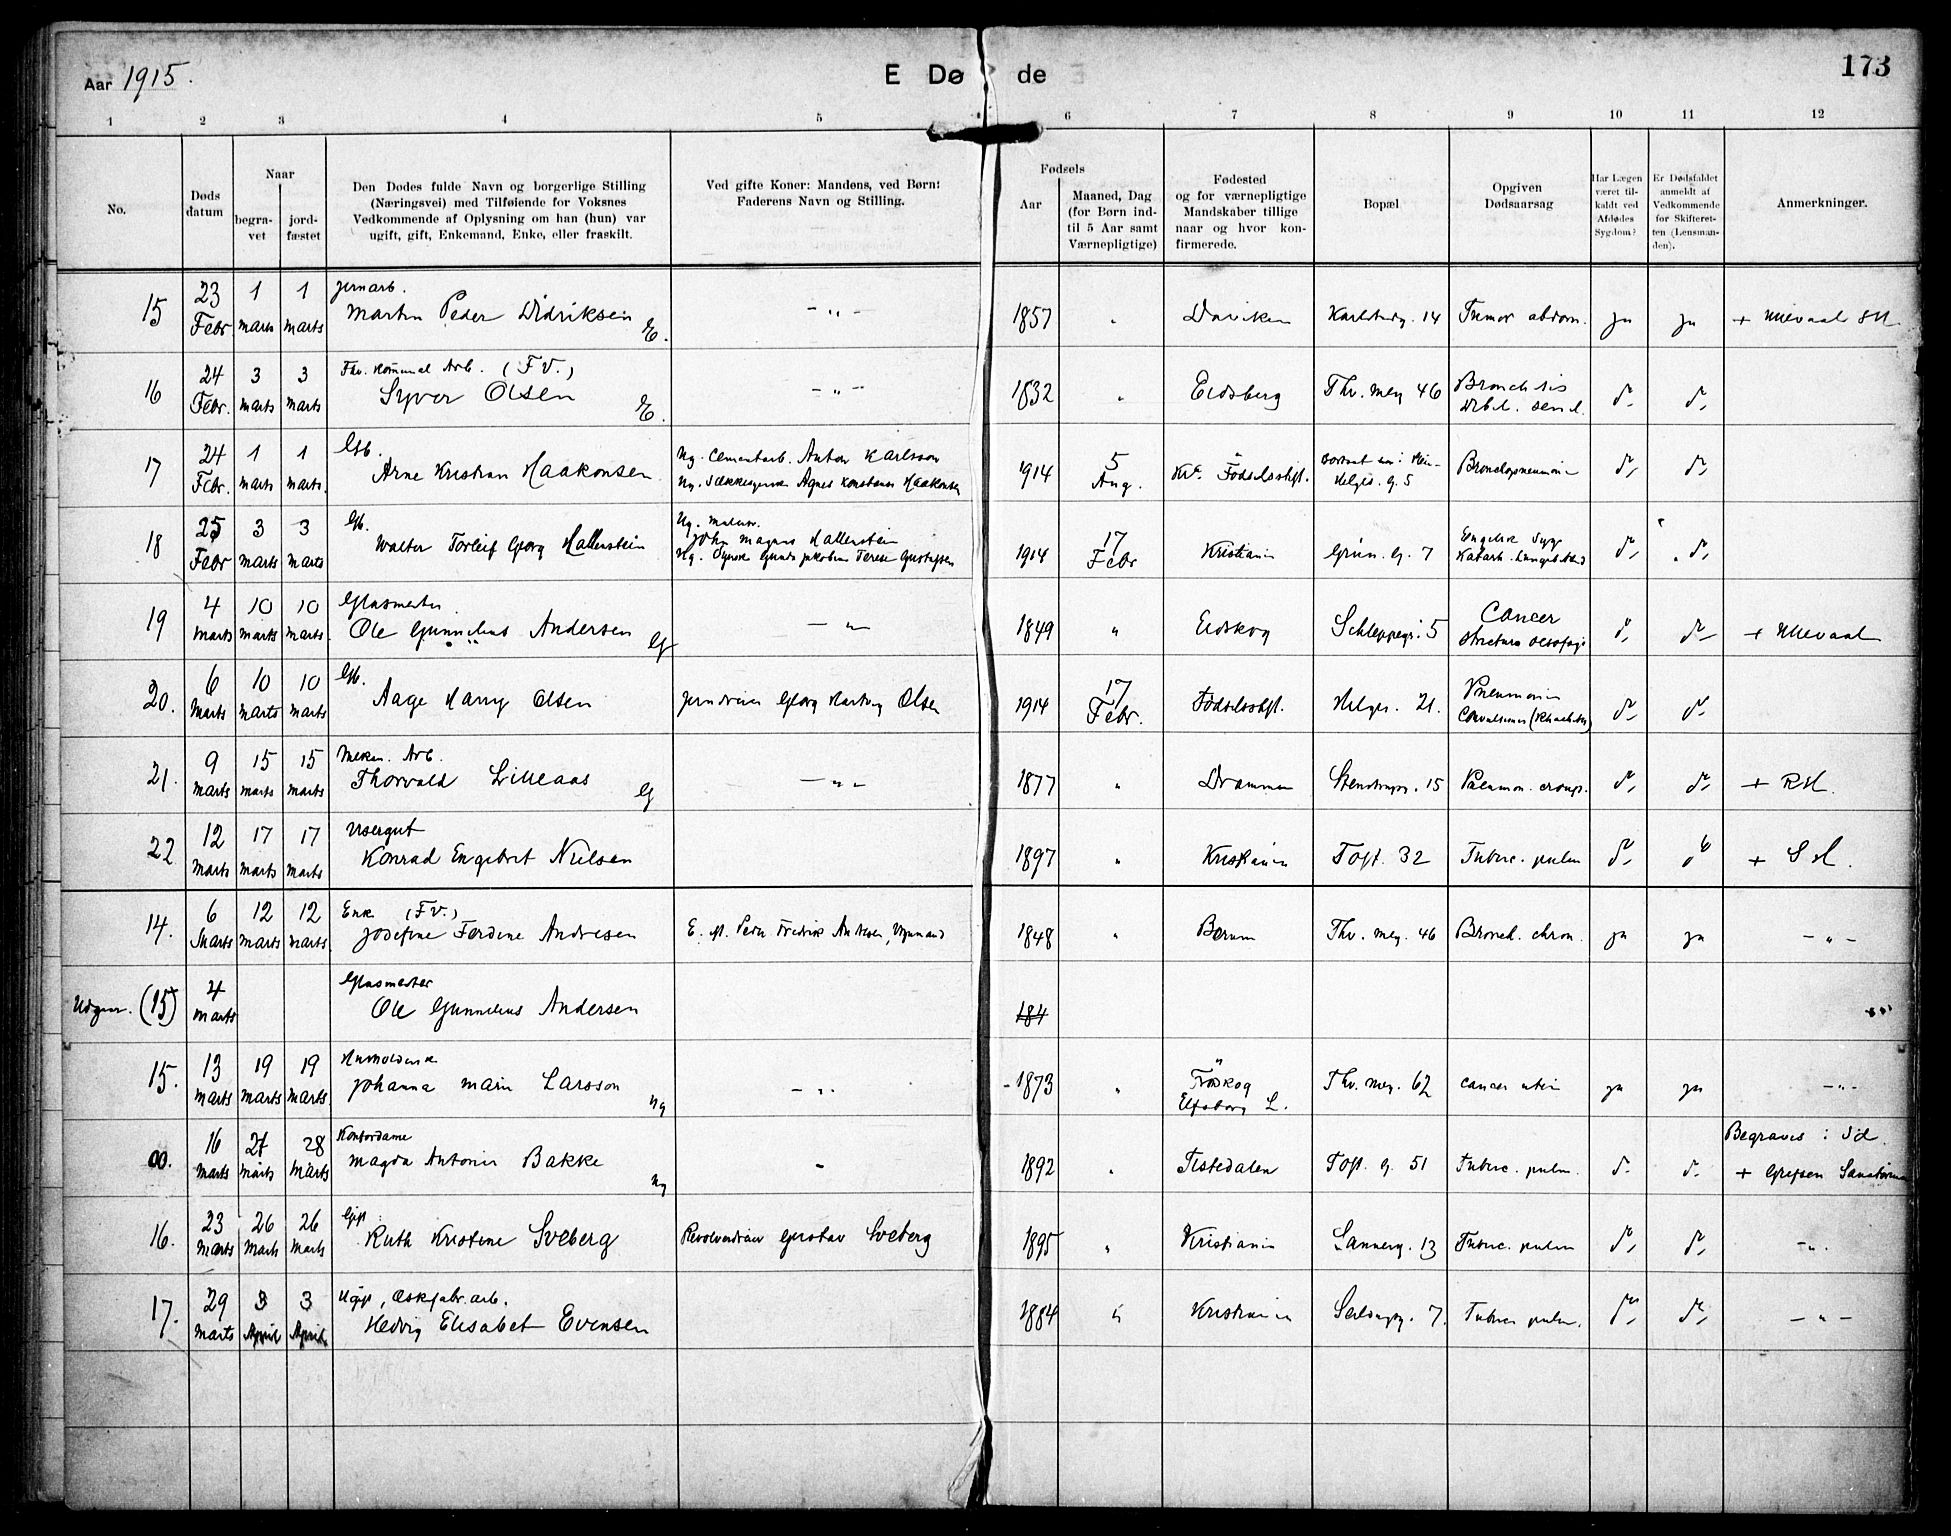 Aar 1915.
E Døde
173
1 2 3 4 5 6 7 8 9 10 11 12
No.
Døds datum
Naar
begravet
jordfæstet
Den Dødes fulde Navn og borgerlige Stilling
(Næringsvei) med Tilføiende for Voksnes
Vedkommende af Oplysning om han (hun) var
ugift, gift, Enkemand, Enke, eller fraskilt.
Ved gifte Koner: Mandens, ved Børn:
Faderens Navn og Stilling.
Fødsels
Aar
Maaned, Dag
(for Børn ind-
til 5 Aar samt
Værnepligtige)
Fødested
og for værnepligtige
Mandskaber tillige
naar og hvor kon-
firmerede.
Bopæl
Opgiven
Dødsaarsag
Har Lægen
været til-
kaldt ved
Afdødes
Sygdom?
Er Dødsfaldet
anmeldt af
Vedkommende
for Skifteret-
ten (Lensman-
den).
Anmerkninger.
15 23 Febr. 1 marts 1 marts
Jernarb.
Martin Peder Didriksen E.
— „ —
1857 „ Daviken Karlstadg. 14 Tumor abdom. ja ja + Ullevaal SH.
16 24 Febr. 3 marts 3 marts
Fhv. Kommunal Arb. (F V.)
Syver Olsen E.
— „ —
1832 „ Eidsberg Thv. mey 46 Bronchitis
Debil. senil. do do
17 24 Febr. 1 marts 1 marts.
Gb.
Arne Kristian Haakonsen
Ug. Cementarb. Anton Karlsson
Ug. Sækkesyerske Agnes Konstanse Haakonsen
1914 5 Aug. Kr.a Födselsstift.
Helges. g. 5 Bronchopneumoni do do
18 25 Febr 3 marts 3 marts
Gb.
Walter Torleif Georg Hallenstein
Ug. Maler
John Magnus Hallenstein
Ug. Syerske Gunda Jakobine Terese Gustafsen
1914 17 Febr Kristiania Grün. g. 7 Engelsk Syge
Katarh. Lungebetænd do do
19 4 marts 10 marts 10 marts.
Glasmester
Ole Gunnelius Andersen G
— „ —
1849 „ Eidskog Schleppegr. 5 Cancer
Strictura oesofagi do do + Ullevaal
20. 6 Marts 10 marts 10 marts
Gb.
Aage Harry Olsen
Jerndreier Georg Hartvig Olsen
1914 17 Febr. Födselsstift. Helges. 21. Pneumonia
Convulsiones (Rhachitis) do do
21. 9 marts 15 marts 15 marts
Mekan. Arb.
Thorvald Lilleaas G
— „ —
1877 „ Drammen Stenstrupg. 15 Pneumon. croup. do do + RH.
22 12 marts 17 marts 17 marts
Visergut
Konrad Engebret Nielsen
1897 „ Kristiania Toft. 32 Tuberc. pulm do do + S H.
14. 6 Marts 12 marts 12 marts
Enke (F V.)
Josefine Fordine Andresen
E. ft. Peder Fredrik Andresen, Vognmand
1848 „ Berum Thv. mey. 46 Bronch. chron. ja ja — „ —
Udgaar. (15) 4 marts
Glasmester
Ole Gunnelius Andersen
184
15. 13 Marts 19 marts 19 marts.
Husholderske
Johanna Marie Larsson Ug
— „ —
1873 „ Fröskog
Elfsborg L. Thv. mey. 62 Cancer uteri ja ja — „ —
00. 16 marts 27 marts 28 marts
Kontordame
Magda Antonie Bakke Ug
„
1892 „ Tistedalen Toft. g. 51 Tuberc. pulm. do do Begraves i Id.
+ Grefsen Sanatorium
16. 23 Marts 26 Marts 26 Marts
Gift
Ruth Kristine Sveberg
Revolverdreier Gustav Sveberg
1895 „ Kristiania Sannerg. 13 Tuberc. pulm do do — „ —
17. 29 marts 3 April 3 April
Ugift, Æskfabr. arb.
Hedvig Elisabet Evensen
1884 „ Kristiania Seildugsg. 7. Tuberc pulm. do do — „ —